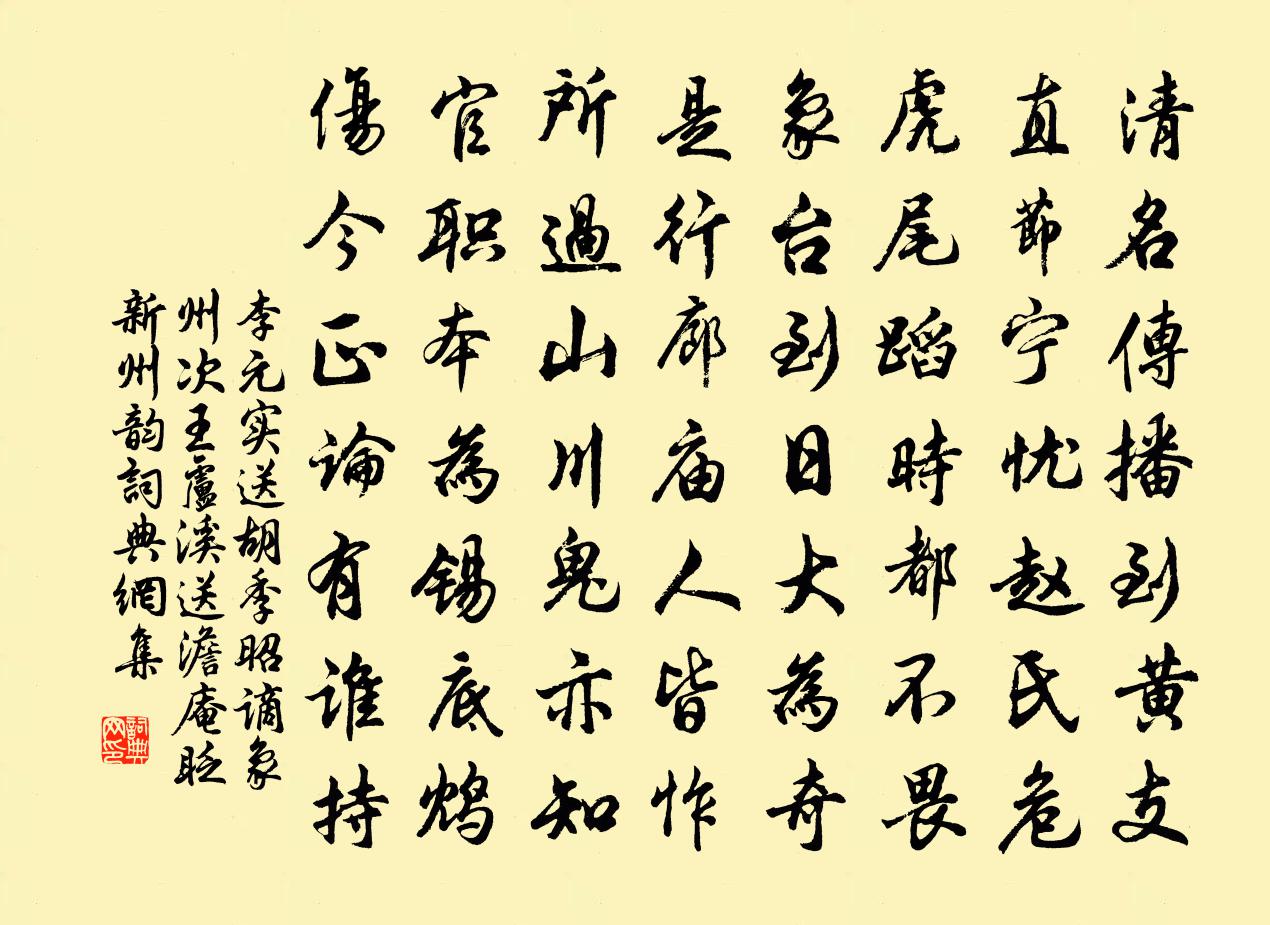 清名傳播到黄支
直節宁忧赵氏危
虎尾蹈時都不畏
象台到日大為奇
是行廊庙人皆怍
所過山川鬼亦知
官职本為锡底鸩
傷今正論有谁持
李元实送胡季昭谪象
州次王盧溪送澹庵贬
新州韵詞典網集
詞典网印